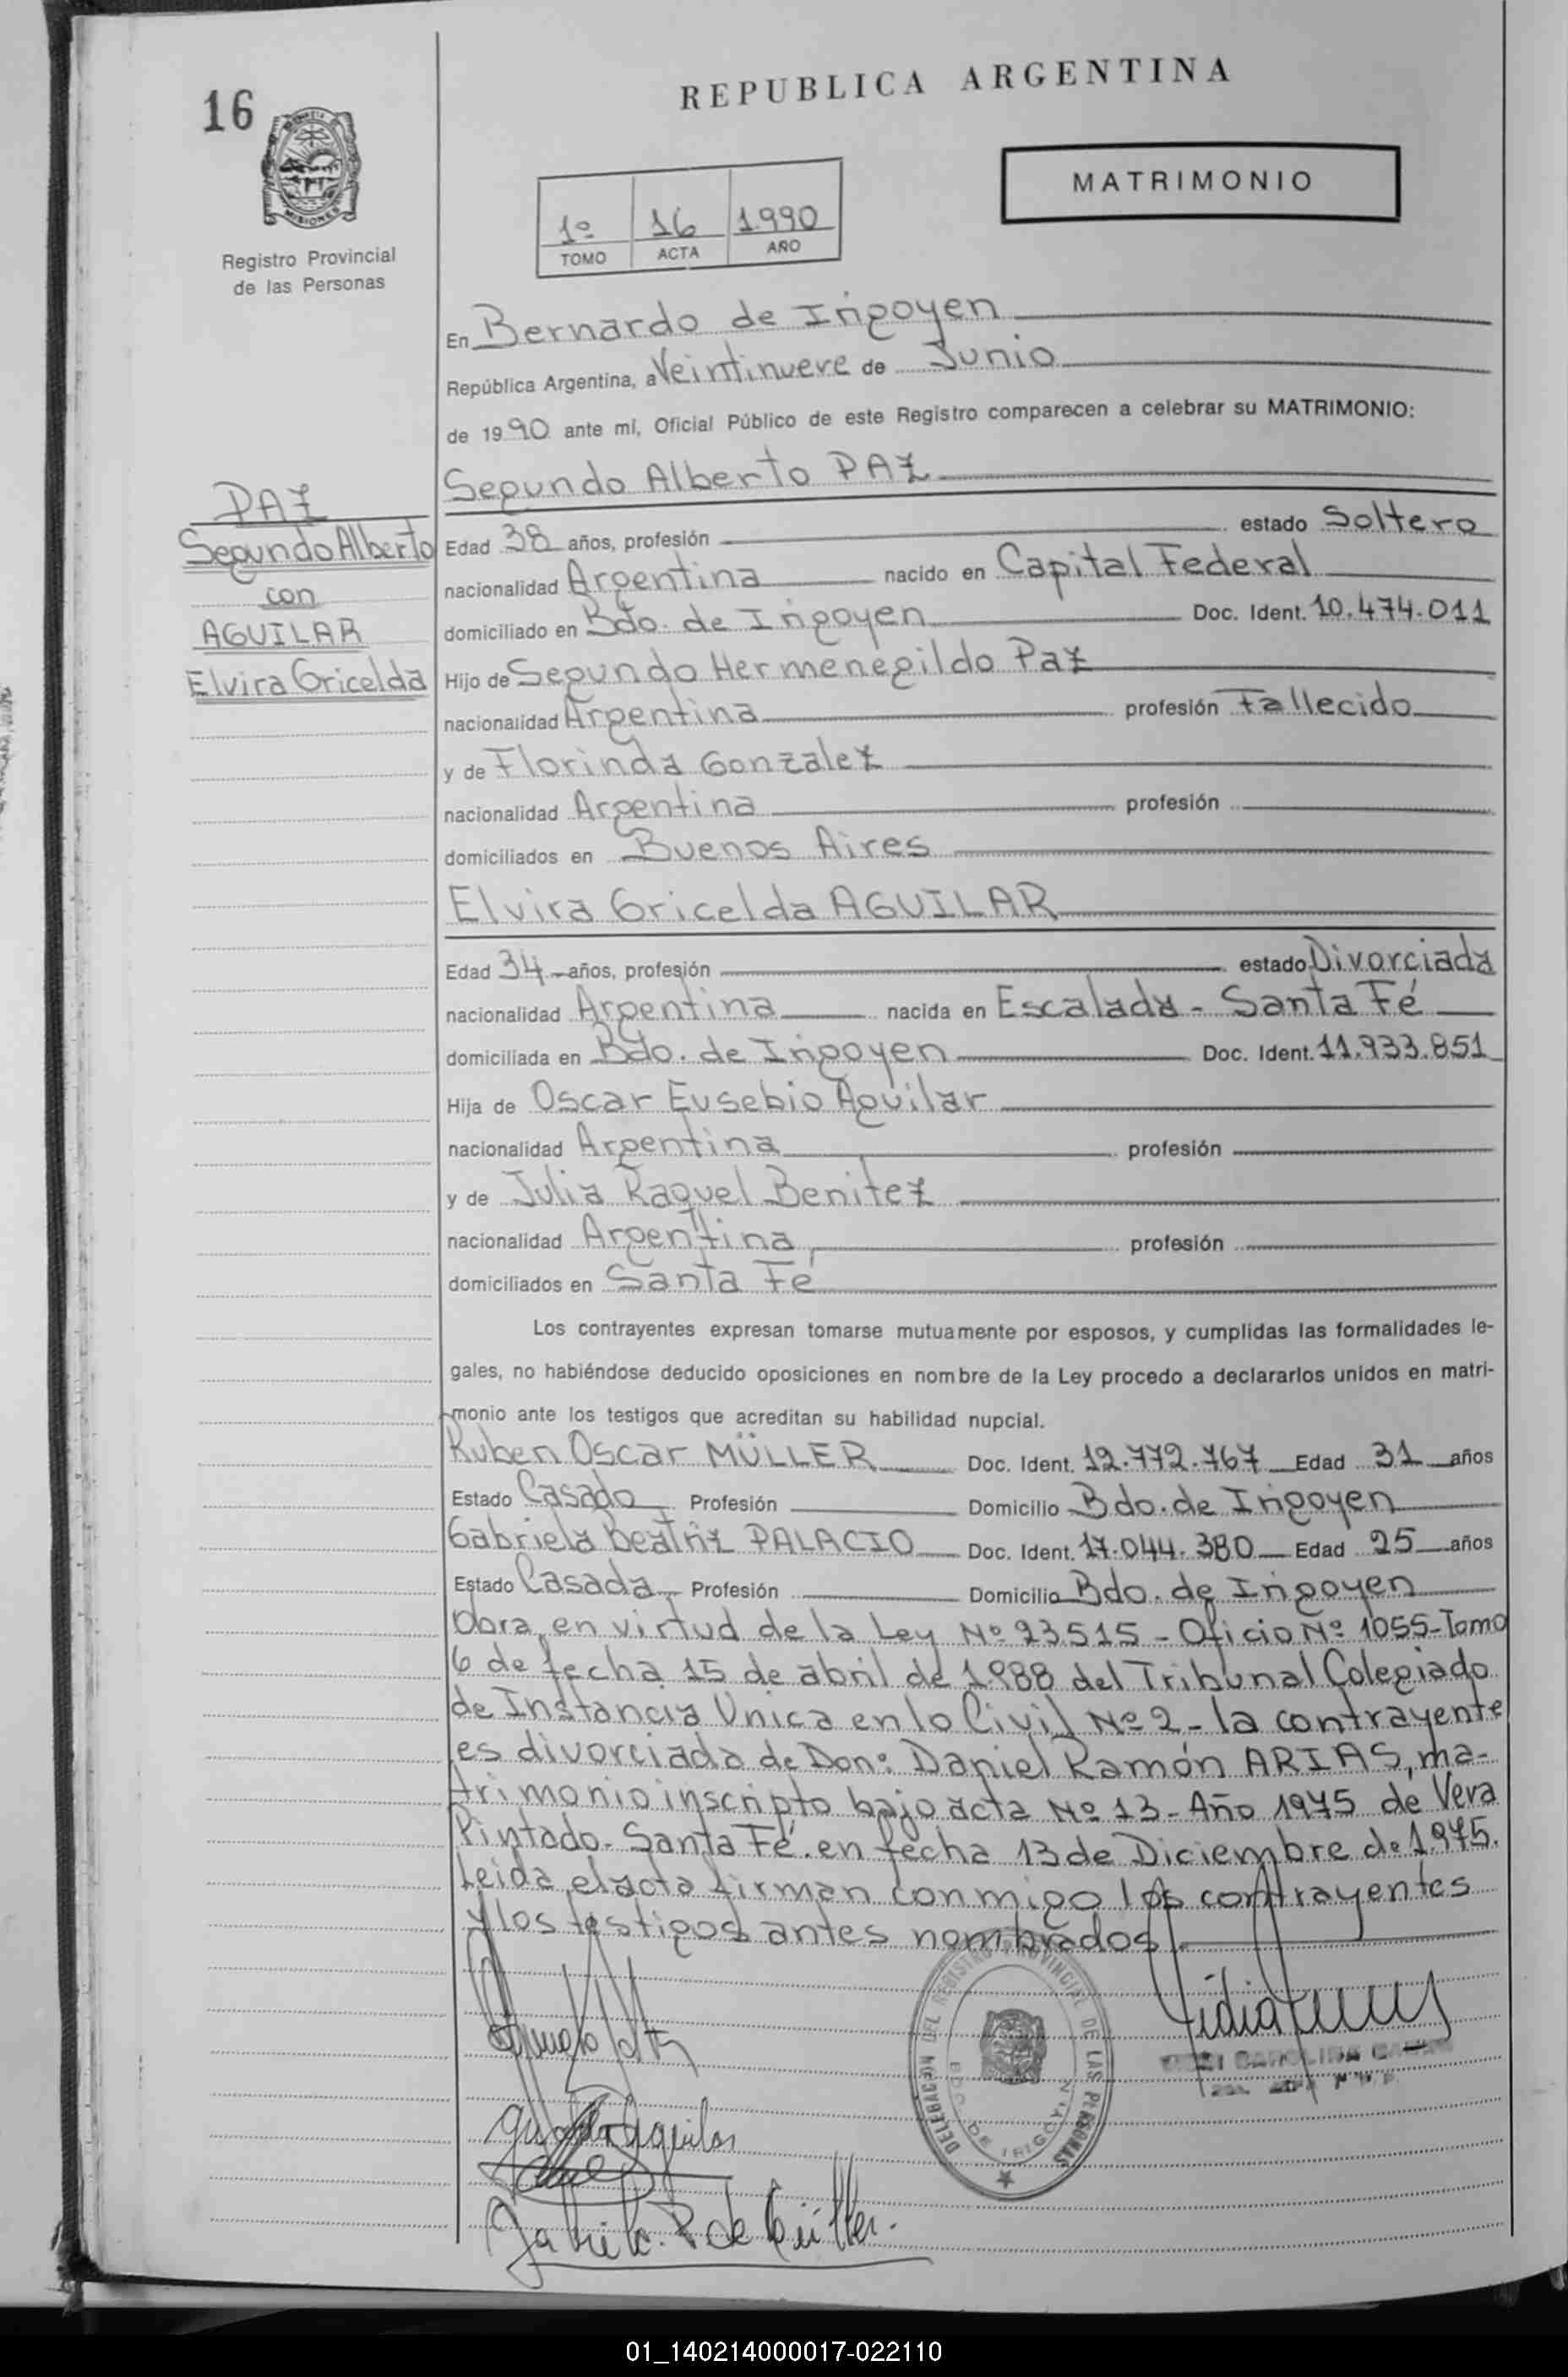 16
REPUBLICA ARGENTINA
MATRIMONIO
MISIONES
1º 16 1.990
TOMO ACTA AÑO
Registro Provincial
de las Personas
En Bernardo de Irigoyen
República Argentina, a Veintinueve de Junio
de 1990 ante mí, Oficial Público de este Registro comparecen a celebrar su MATRIMONIO:
Segundo Alberto PAZ
PAZ
Segundo Alberto
con
AGUILAR
Elvira Gricelda
Edad 38 años, profesión estado Soltero
nacionalidad Argentina nacido en Capital Federal
domiciliado en Bdo. de Irigoyen Doc. Ident. 10.474.011
Hijo de Segundo Hermenegildo Paz
nacionalidad Argentina profesión Fallecido
y de Florinda Gonzalez
nacionalidad Argentina profesión
domiciliados en Buenos Aires
Elvira Gricelda AGUILAR
Edad 34 años, profesión estado Divorciada
nacionalidad Argentina nacida en Escalada - Santa Fé
domiciliada en Bdo. de Irigoyen Doc. Ident. 11.933.851
Hija de Oscar Eusebio Aguilar
nacionalidad Argentina profesión
y de Julia Raquel Benitez
nacionalidad Argentina profesión
domiciliados en Santa Fé
Los contrayentes expresan tomarse mutuamente por esposos, y cumplidas las formalidades le-
gales, no habiéndose deducido oposiciones en nombre de la Ley procedo a declararlos unidos en matri-
monio ante los testigos que acreditan su habilidad nupcial.
Ruben Oscar MÜLLER Doc. Ident. 12.772.767 Edad 31 años
Estado Casado Profesión Domicilio Bdo. de Irigoyen
Gabriela Beatriz PALACIO Doc. Ident. 17.044.380 Edad 25 años
Estado Casada Profesión Domicilio Bdo. de Irigoyen
Obra en virtud de la Ley Nº 23.515 - Oficio Nº 1055 - Tomo
6 de fecha 15 de abril de 1.988 del Tribunal Colegiado
de Instancia Unica en lo Civil Nº 2 - la contrayente
es divorciada de Don: Daniel Ramón ARIAS, ma-
trimonio inscripto bajo acta Nº 13 - Año 1975 de Vera
Pintado - Santa Fé. en fecha 13 de Diciembre de 1.975.
Leida el acta firman conmigo los contrayentes
y los testigos antes nombrados
DELEGACION DEL REGISTRO PROVINCIAL DE LAS PERSONAS
BDO. DE IRIGOYEN
Aguilar
01_140214000017-022110